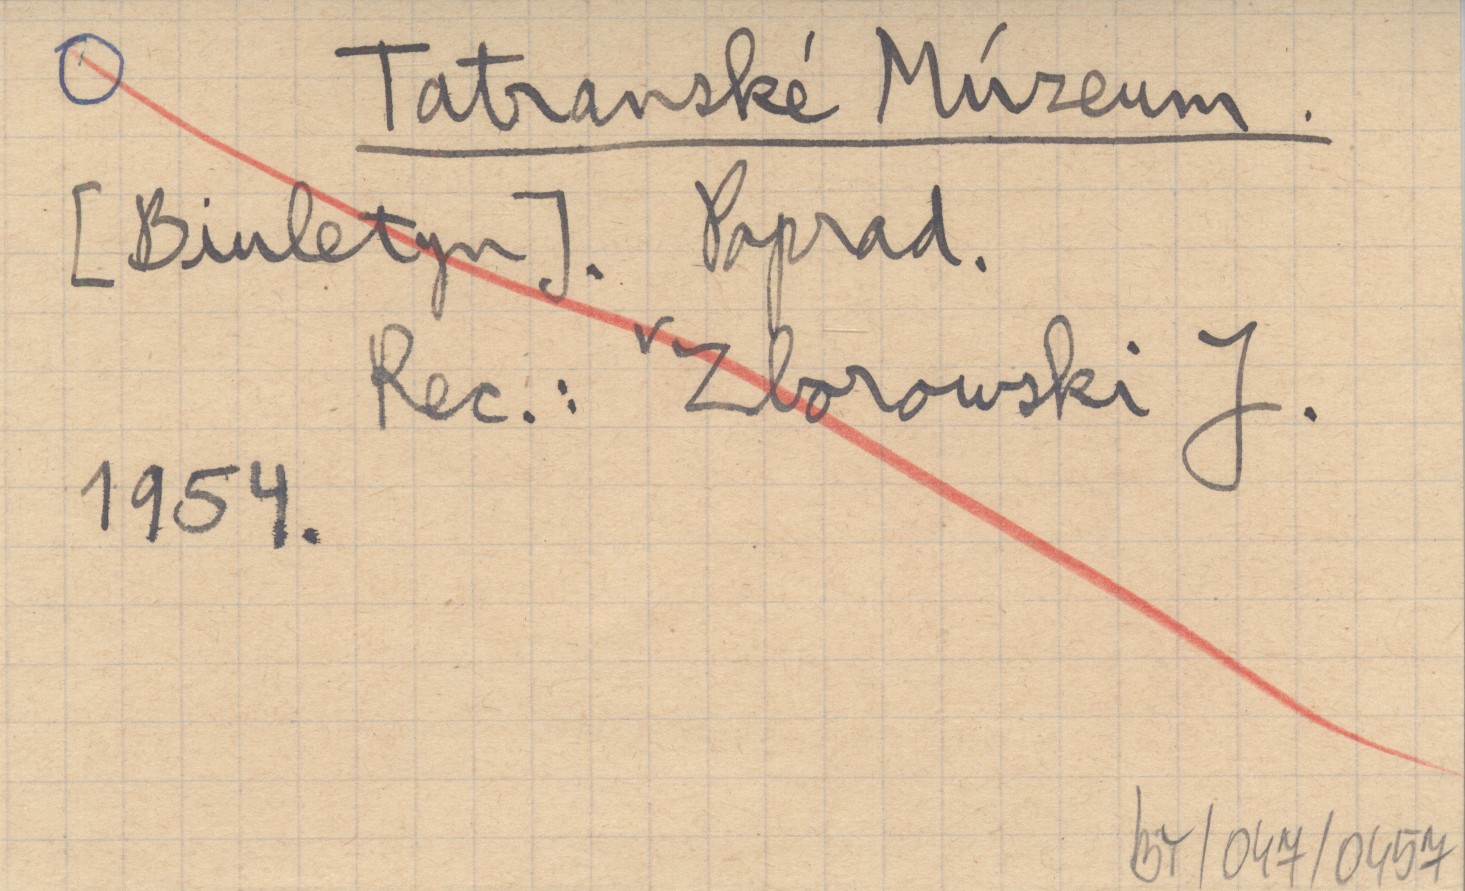 Tatranské Múzeum.
[Biuletyn]. Poprad.
Rec.: ᵛZborowski J.
1954.
bt/047/0457